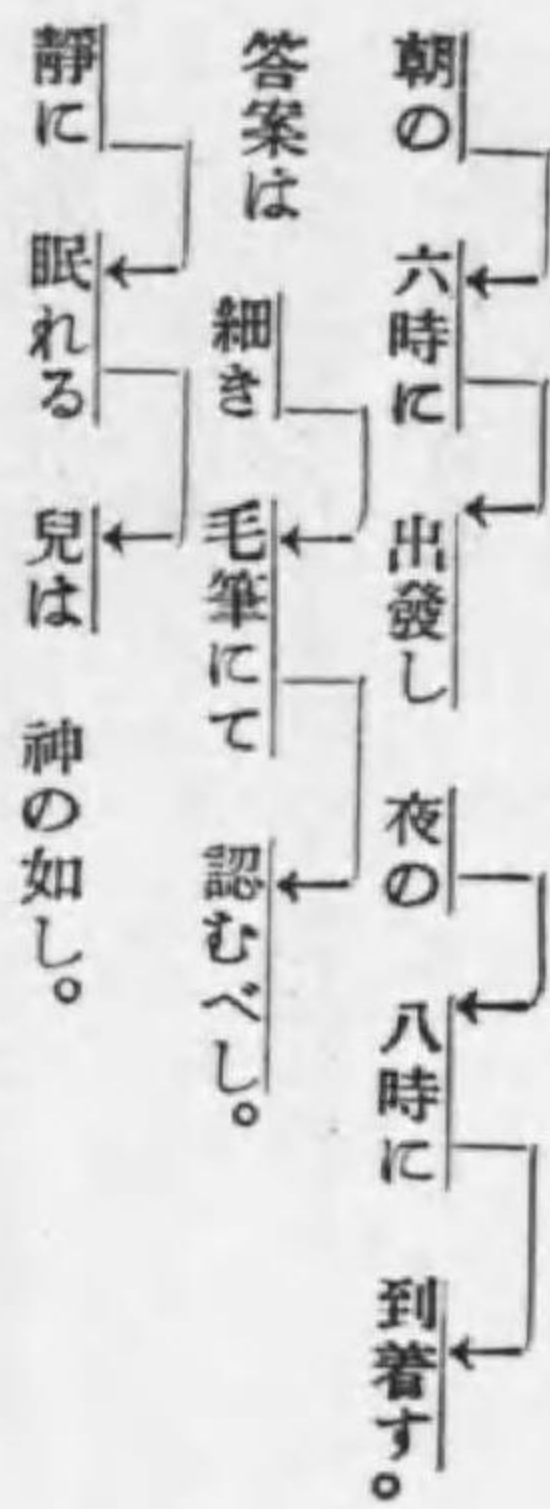 朝の 六時に 出發し 夜の 八時に 到着す。
答案は 細き 毛筆にて 認むべし。
靜に 眠れる 兒は 神の如し。